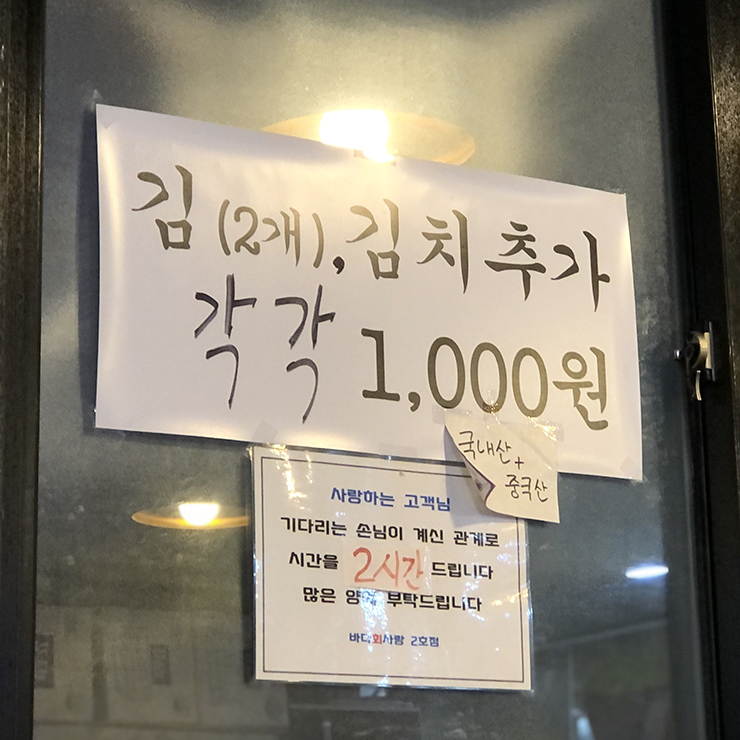 김 (2개), 김치추가
각각 1,000원
국내산+
중국산
사랑하는 고객님
기다리는 손님이 계신 관계로
시간을 2시간 드립니다
많은 부탁드립니다
바다회사랑 2호점